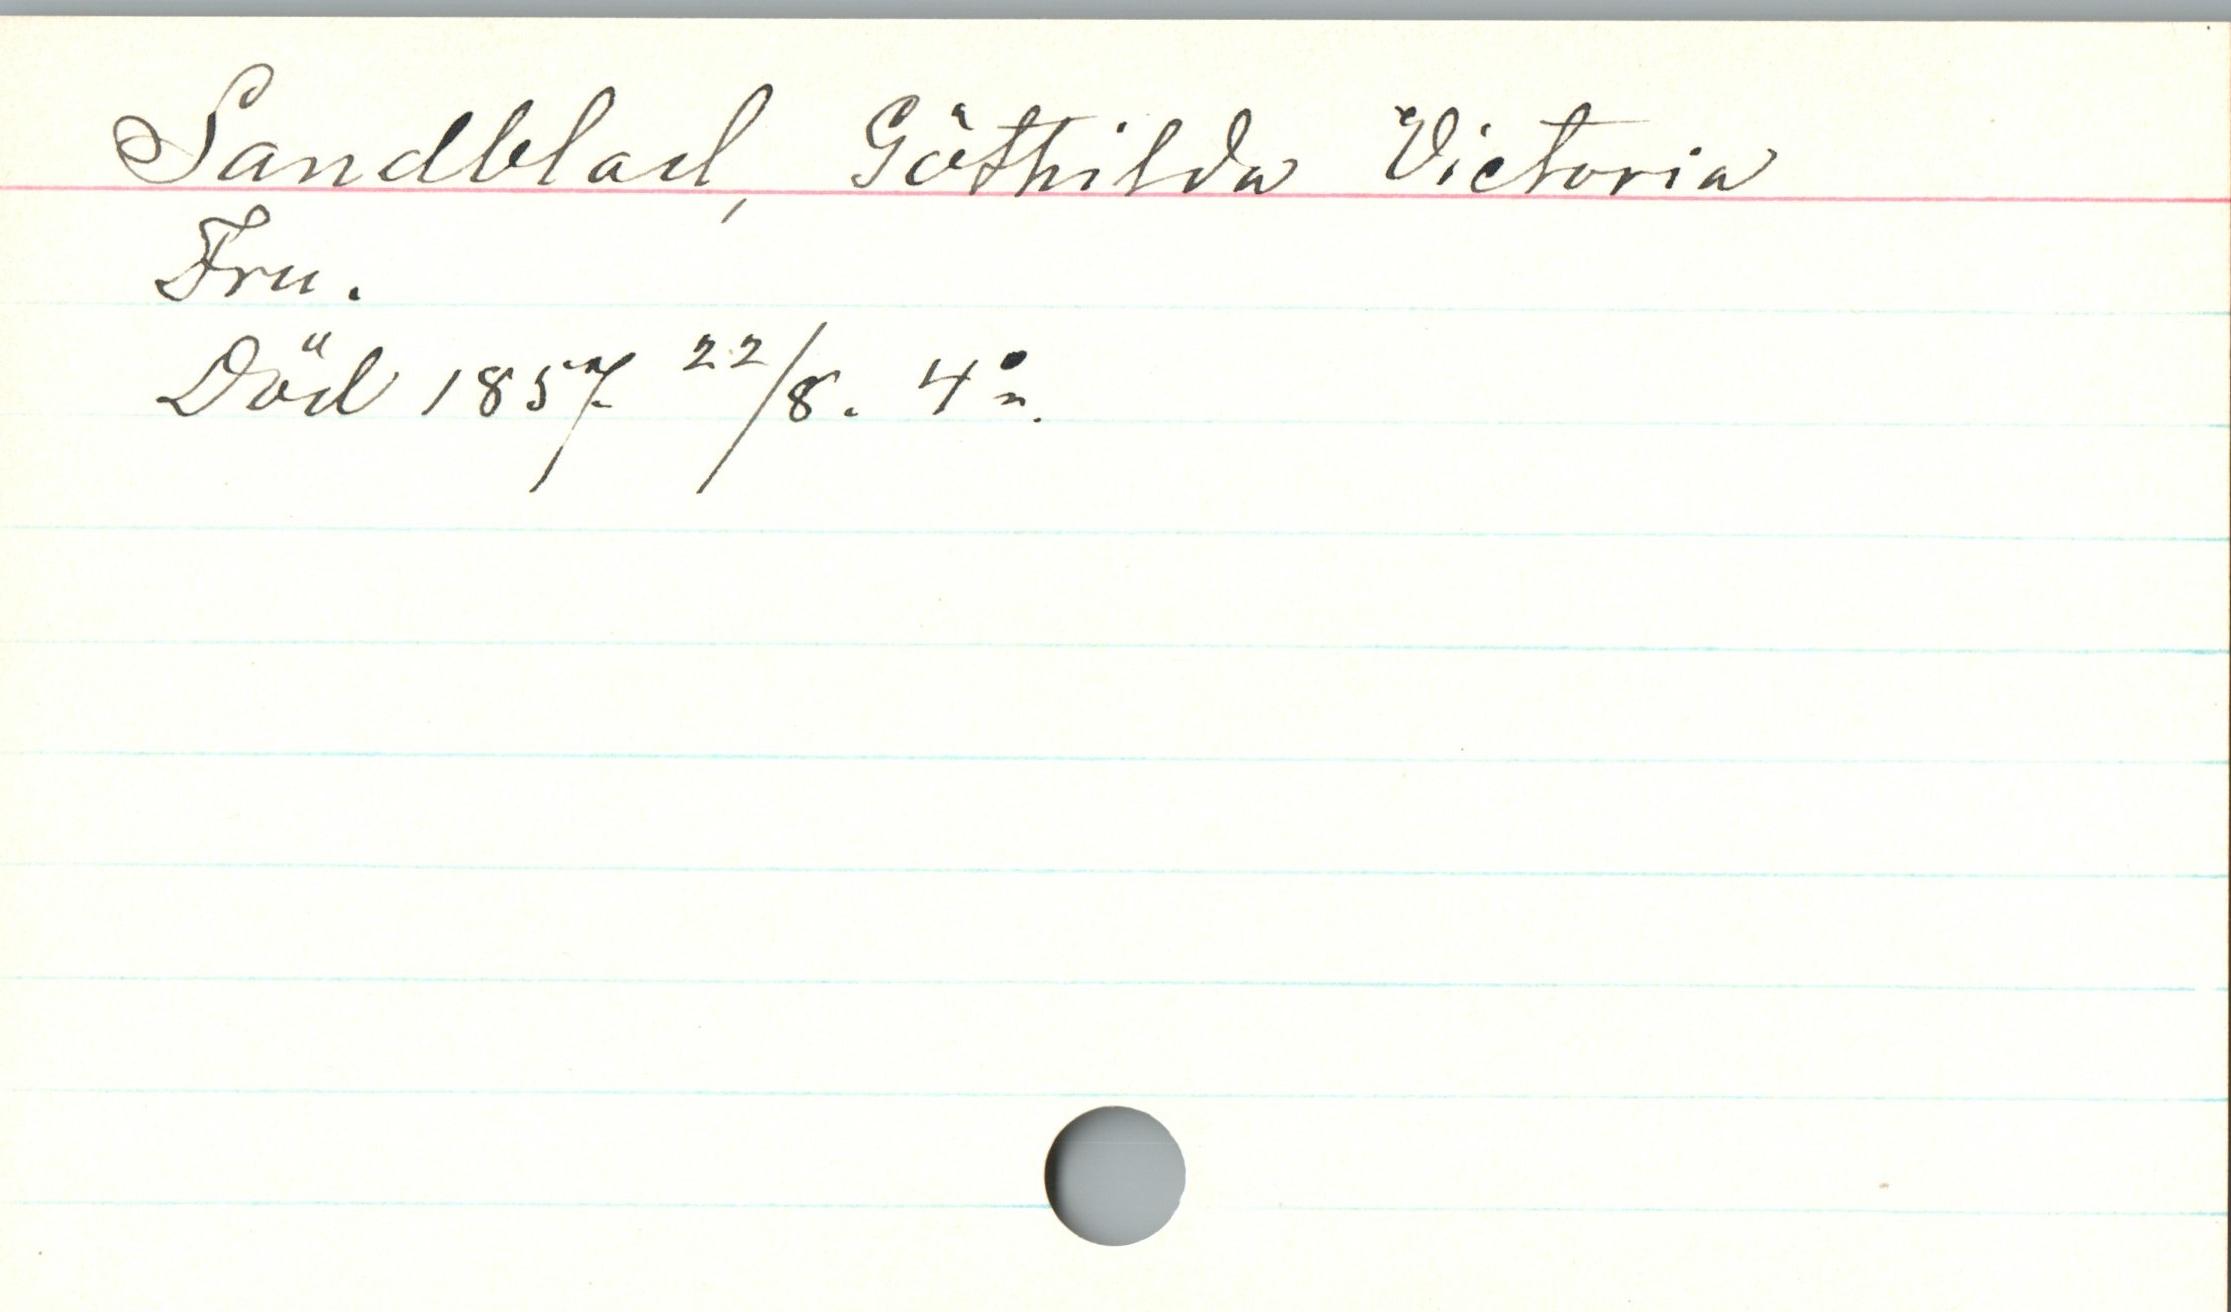 Sandblad, Göthilda Victoria
Fru.
Död 1857 22/8. 4:o